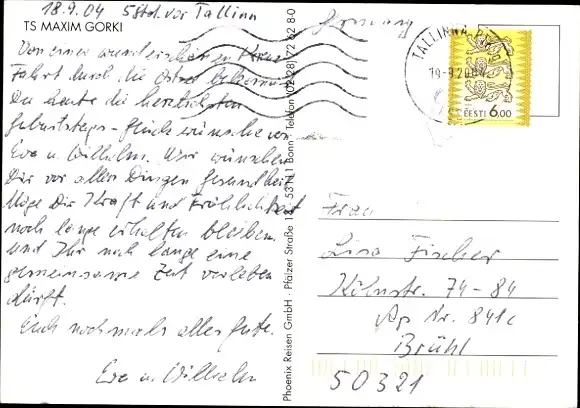 18.9.04 5 Std. vor Tallinn
TS MAXIM GORKI
Von einer wunderschönen Kreuz
Fahrt durch die Ostsee bekommst
Du heute die herzlichsten
Geburtstags-Glückwünsche von
Eva u. Wilhelm. Wir wünschen
Dir vor allen Dingen Gesundheit
Möge Dir Kraft und Fröhlichkeit
noch lange erhalten bleiben.
und Ihr noch lange eine
gemeinsame Zeit verleben
dürft.
Euch nochmals alles Gute.
Eva u. Wilhelm
Phoenix Reisen GmbH · Pfälzer Straße 14 · 53111 Bonn · Telefon (02 28) 72 62 8-0
Germany
TALLINNA
19-9.2004
EESTI 6.00
Frau
Lisa Fischer
Kölnstr. 74-84
Ap Nr. 841c
Brühl
50321